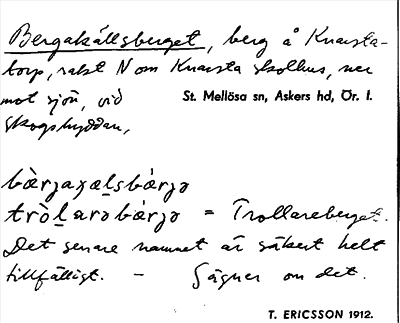 Bergakällsberget, berg å Knarsta-
torp, rakt N om Knarsta skolhus, ner
mot sjön, vid
St. Mellösa sn, Askers hd, Ör. l.
skogshyddan,
trollarobärjə = Trollareberget.
Det senare namnet är säkert helt
tillfälligt. – Sägner om det.
T. ERICSSON 1912.